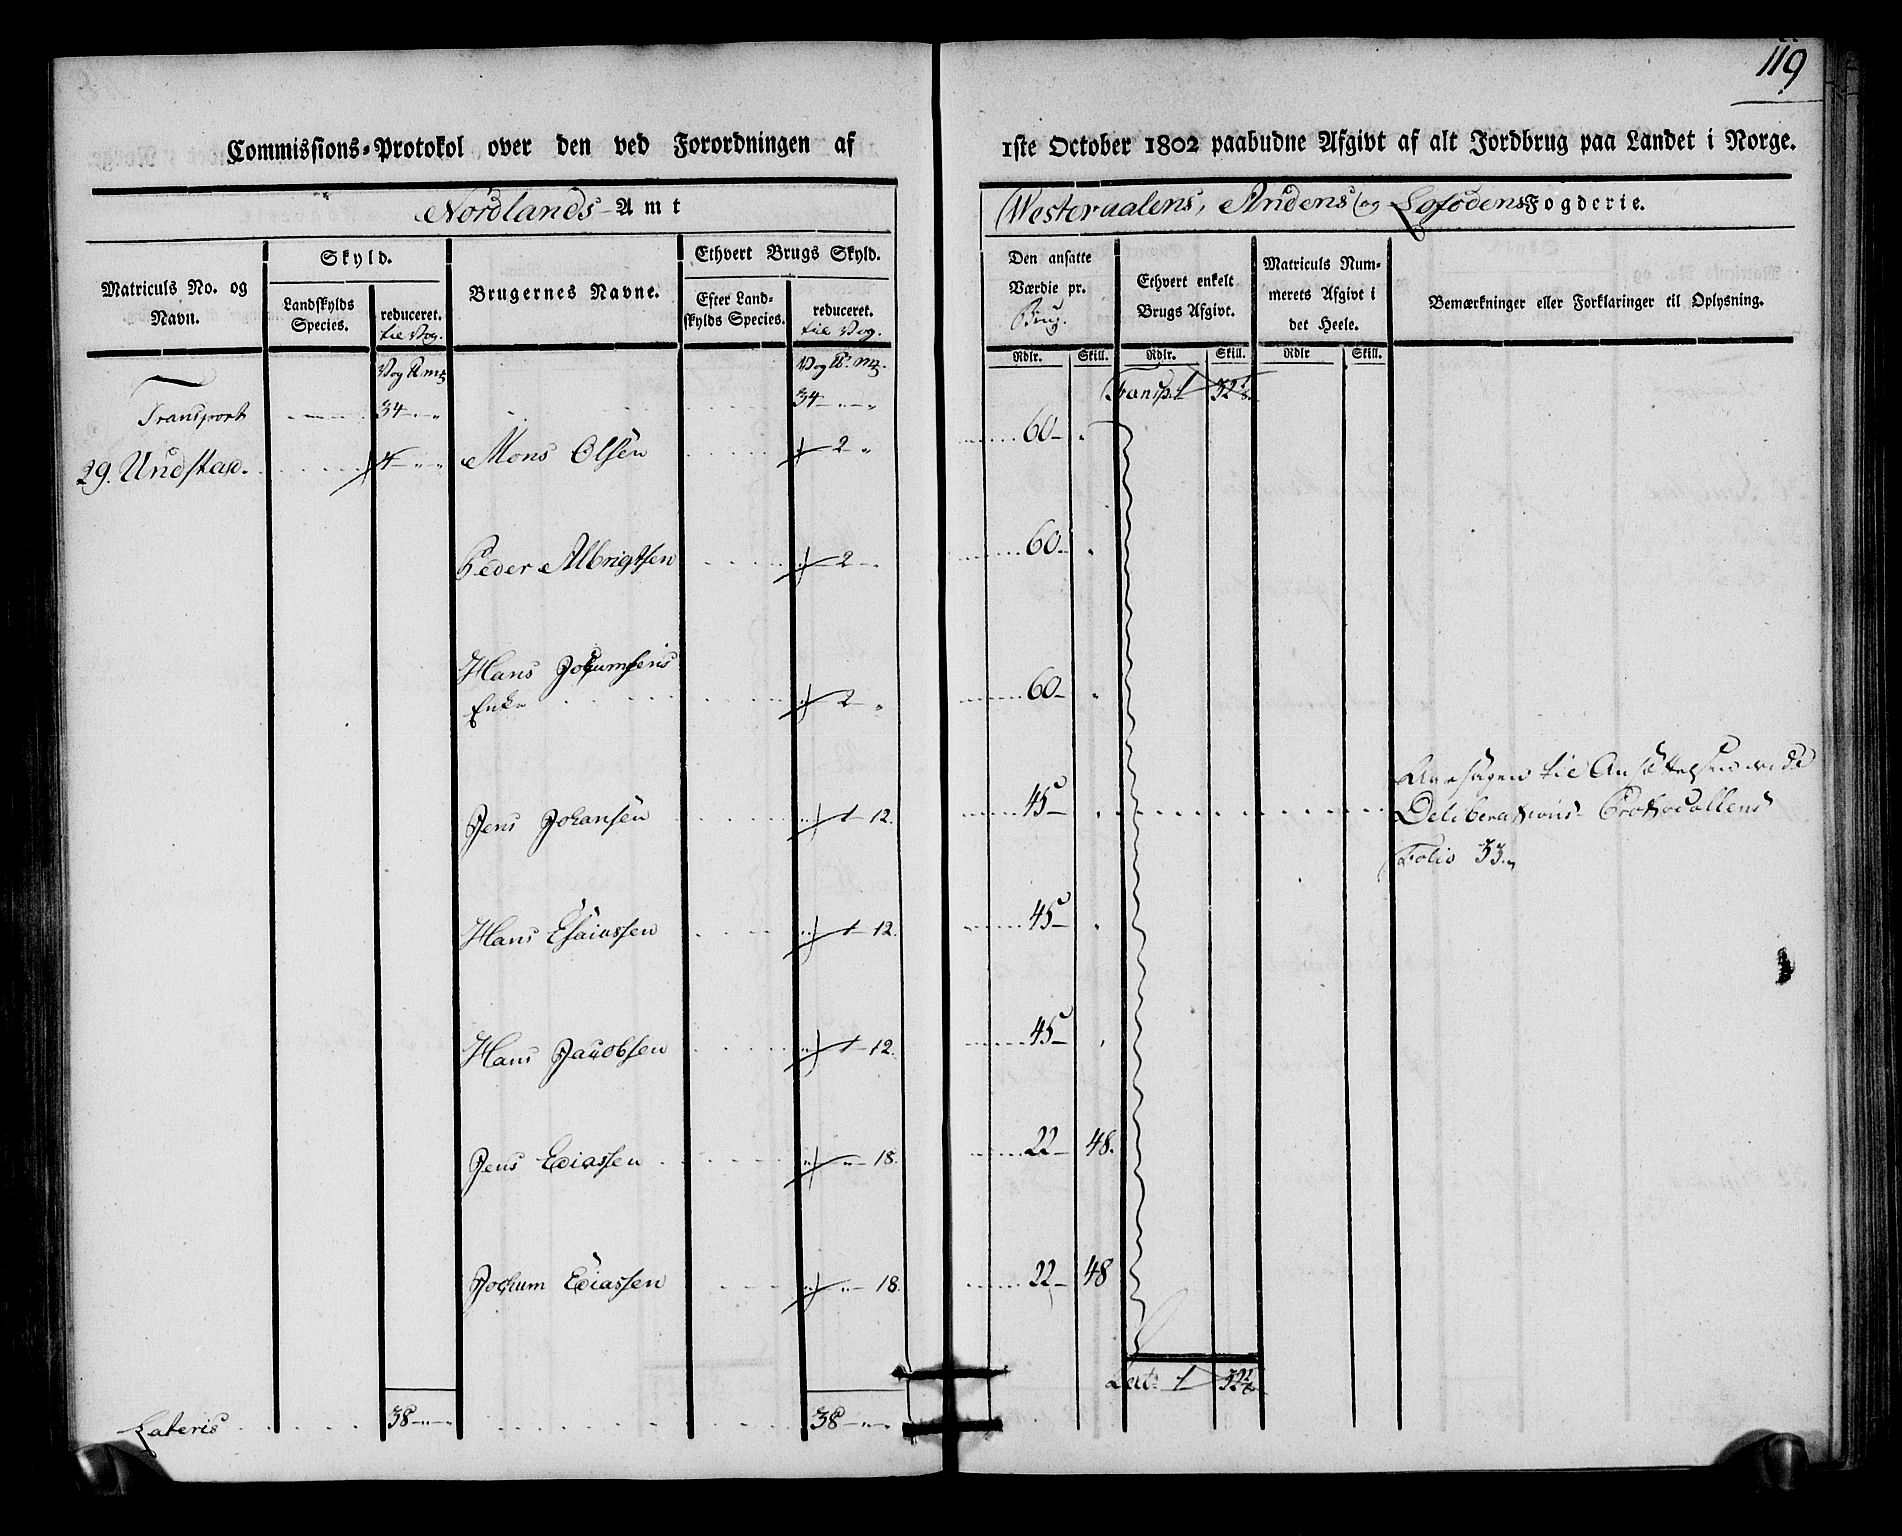 119
Commissions-Protokol over den ved Forordningen af 1ste October 1802 paabudne Afgivt af alt Jordbrug paa Landet i Norge.
Nordlands Amt
Westeraalens, Andens og Lofodens Fogderie.
Matriculs No. og Navn.
Skyld.
Landskylds Species.
reduceret. til Vog.
Brugernes Navne.
Ethvert Brugs Skyld.
Efter Landskylds Species.
reduceret. til Vog.
Den ansatte Værdie pr. Brug.
Ethvert enkelt Brugs Afgivt.
Matriculs Nummerets Afgivt i det Heele.
Bemærkninger eller Forklaringer til Oplysning.
Rdlr. Skill. Rdlr. Skill. Rdlr Skill.
Vog ℔ mk Vog ℔. mk.
Transport 34 - " - " 34 - " - " Transp. 1
29. Undstad. 4 - " - " Mons Olsen 2 " 60 - "
Peder Albrigtsen 2 - " 60 - "
Hans Jochumsens
Enke 2 - " 60 - "
Jens Johansen 1 - 12. 45 - "
Aarsagen til Ansættelsen vide
Deliberations Protocollens
Folio 33.
Hans Esaiassen 1 - 12. 45 - "
Hans Jacobsen 1 - 12. 45 - "
Jens Eliassen " - 18. 22 - 48.
Jochum Eliassen " - 18. 22 - 48
Lateris 38 - " - " 38 - " - " Lat. 1